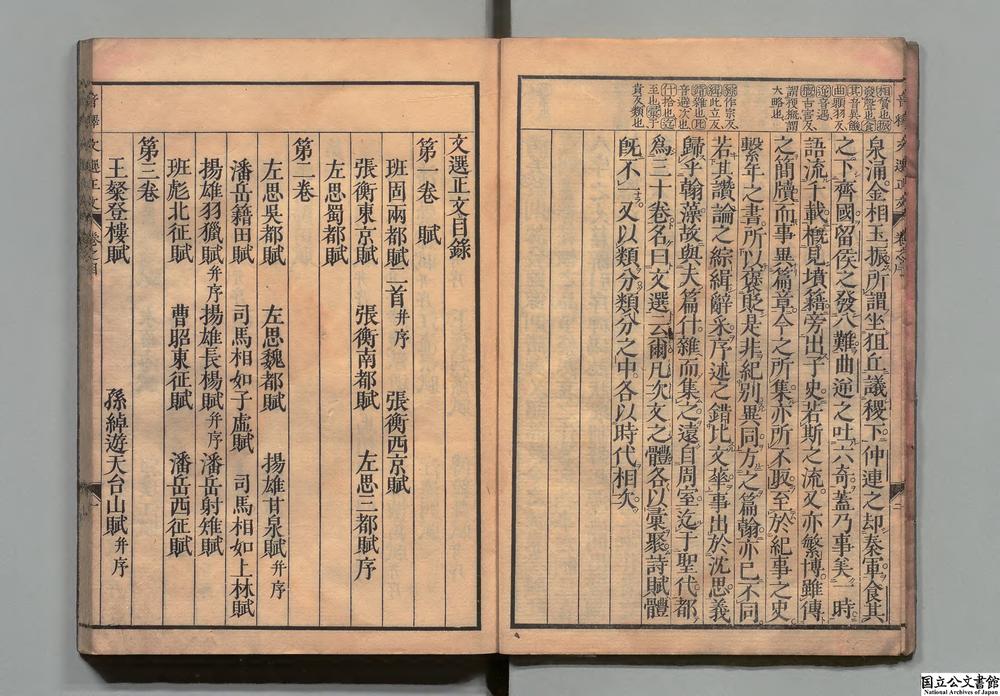 相質也振
發聲也食
其音異饑
大略也
綜作宗反
緝此立反
錯雜也比
音避次也
什拾也迄
至也彙于
貴反類也
泉涌金相玉振所謂坐狙丘議稷下仲連之却秦軍食其
之下齊國留侯之發八難曲逆之吐六奇蓋乃事美一時
語流千載槪見墳籍旁出子史若斯之流又亦繁博雖傳
之簡牘而事異篇章今之所集亦所不取至於紀事之史
繫年之書所以褒貶是非紀別異同方之篇翰亦已不同
若其讚論之綜緝辭采序述之錯比文華事出於沈思義
歸乎翰藻故與夫篇什雜而集之遠自周室迄于聖代都
爲三十卷名曰文選云爾凡次文之體各以彙聚詩賦體
旣不一又以類分類分之中各以時代相次
文選正文目錄
第一卷 賦
班固兩都賦二首并序 張衡西京賦
張衡東京賦 張衡南都賦 左思三都賦序
左思蜀都賦
第二卷
左思吳都賦 左思魏都賦 揚雄甘泉賦并序
潘岳籍田賦 司馬相如子虛賦 司馬相如上林賦
揚雄羽獵賦并序 揚雄長楊賦并序 潘岳射雉賦
班彪北征賦 曹昭東征賦 潘岳西征賦
第三卷
王粲登樓賦 孫綽遊天台山賦并序
音釋 文選正文 卷之目 一
国立公文書館
National Archives of Japan